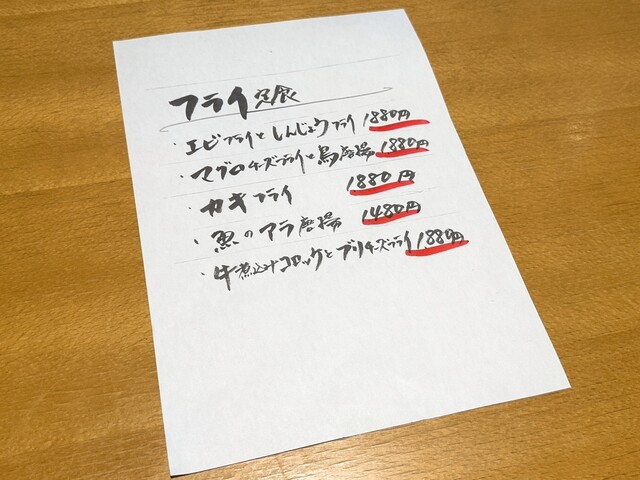 フライ定食
・エビフライとしんじょうフライ 1880円
・マグロチーズフライと鳥唐揚 1880円
・カキフライ 1880円
・魚のアラ唐揚 1480円
・牛煮込みコロッケとブリチーズフライ 1880円